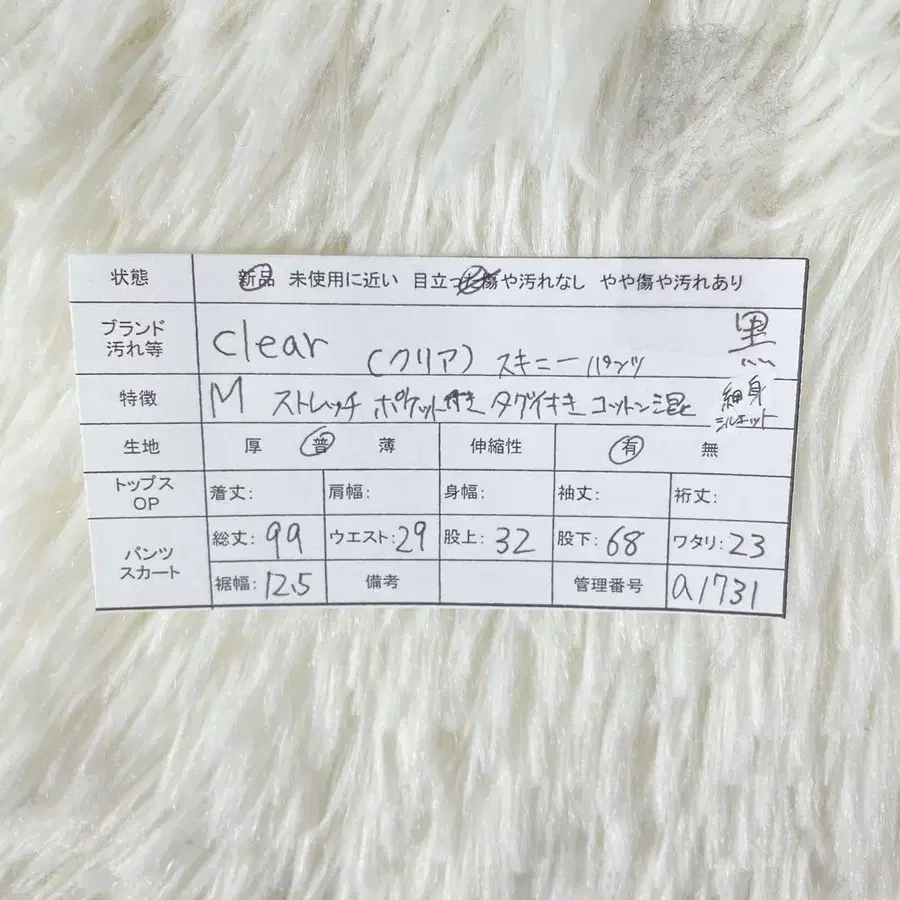 状態 新品 未使用に近い 目立った傷や汚れなし やや傷や汚れあり
ブランド 汚れ等 clear (クリア) スキニーパンツ 黒
特徴 M ストレッチ ポケット付き タグ付き コットン混 細身シルエット
生地 厚 普 薄 伸縮性 有 無
トップス OP 着丈: 肩幅: 身幅: 袖丈: 裄丈:
パンツ スカート 総丈:99 ウエスト:29 股上:32 股下:68 ワタリ:23
裾幅:12.5 備考 管理番号 a1731